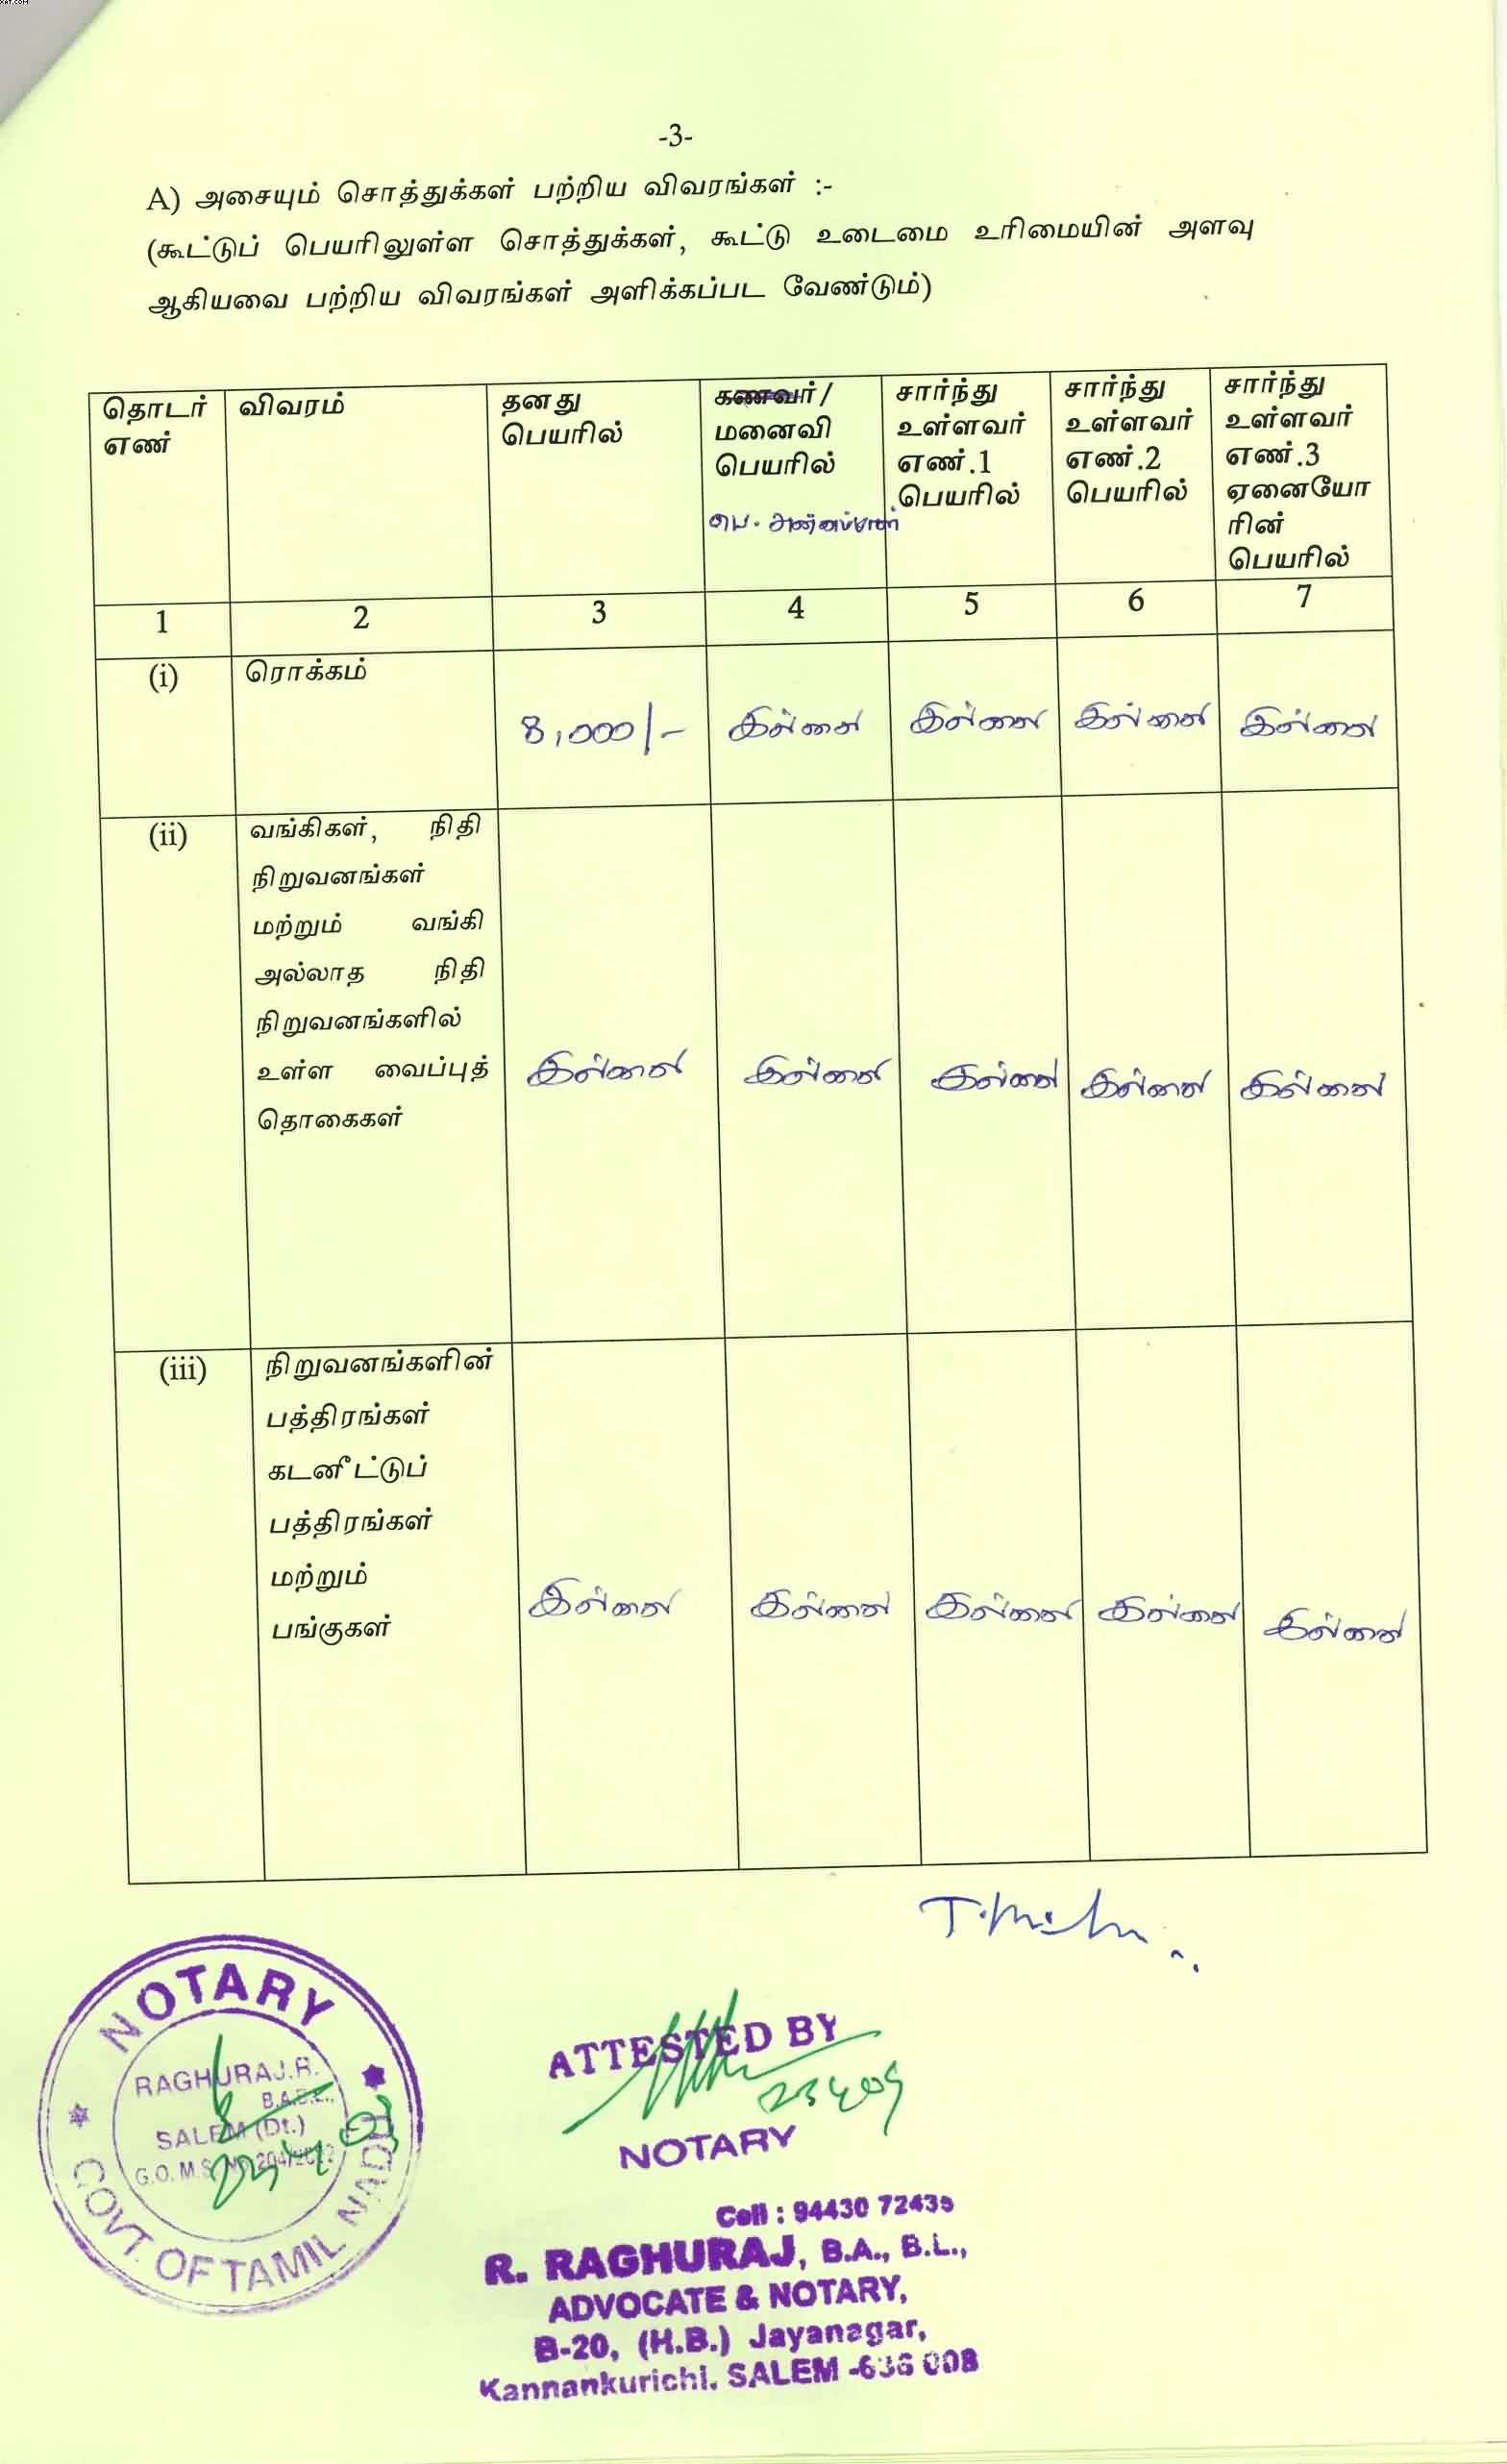 -3-
A) அசையும் சொத்துக்கள் பற்றிய விவரங்கள் :-
(கூட்டுப் பெயரிலுள்ள சொத்துக்கள், கூட்டு உடைமை உரிமையின் அளவு
ஆகியவை பற்றிய விவரங்கள் அளிக்கப்பட வேண்டும்)
தொடர்
எண்
விவரம்
தனது
பெயரில்
கணவர்/
மனைவி
பெயரில்
பெ.
சார்ந்து
உள்ளவர்
எண்.1
பெயரில்
சார்ந்து
உள்ளவர்
எண்.2
பெயரில்
சார்ந்து
உள்ளவர்
எண்.3
ஏனையோ
ரின்
பெயரில்
1 2 3 4 5 6 7
(i) ரொக்கம்
8,000/- இல்லை இல்லை இல்லை இல்லை
(ii) வங்கிகள், நிதி
நிறுவனங்கள்
மற்றும் வங்கி
அல்லாத நிதி
நிறுவனங்களில்
உள்ள வைப்புத்
தொகைகள்
இல்லை இல்லை இல்லை இல்லை இல்லை
(iii) நிறுவனங்களின்
பத்திரங்கள்
கடனீட்டுப்
பத்திரங்கள்
மற்றும்
பங்குகள்
இல்லை இல்லை இல்லை இல்லை இல்லை
NOTARY
RAGHURAJ.R.
B.A.B.L.,
SALEM (Dt.)
G.O. M.S. No.
GOVT. OF TAMIL NADU
ATTESTED BY
NOTARY
Cell : 94430 72435
R. RAGHURAJ, B.A., B.L.,
ADVOCATE & NOTARY,
B-20, (H.B.) Jayanagar,
Kannankurichi, SALEM -636 008